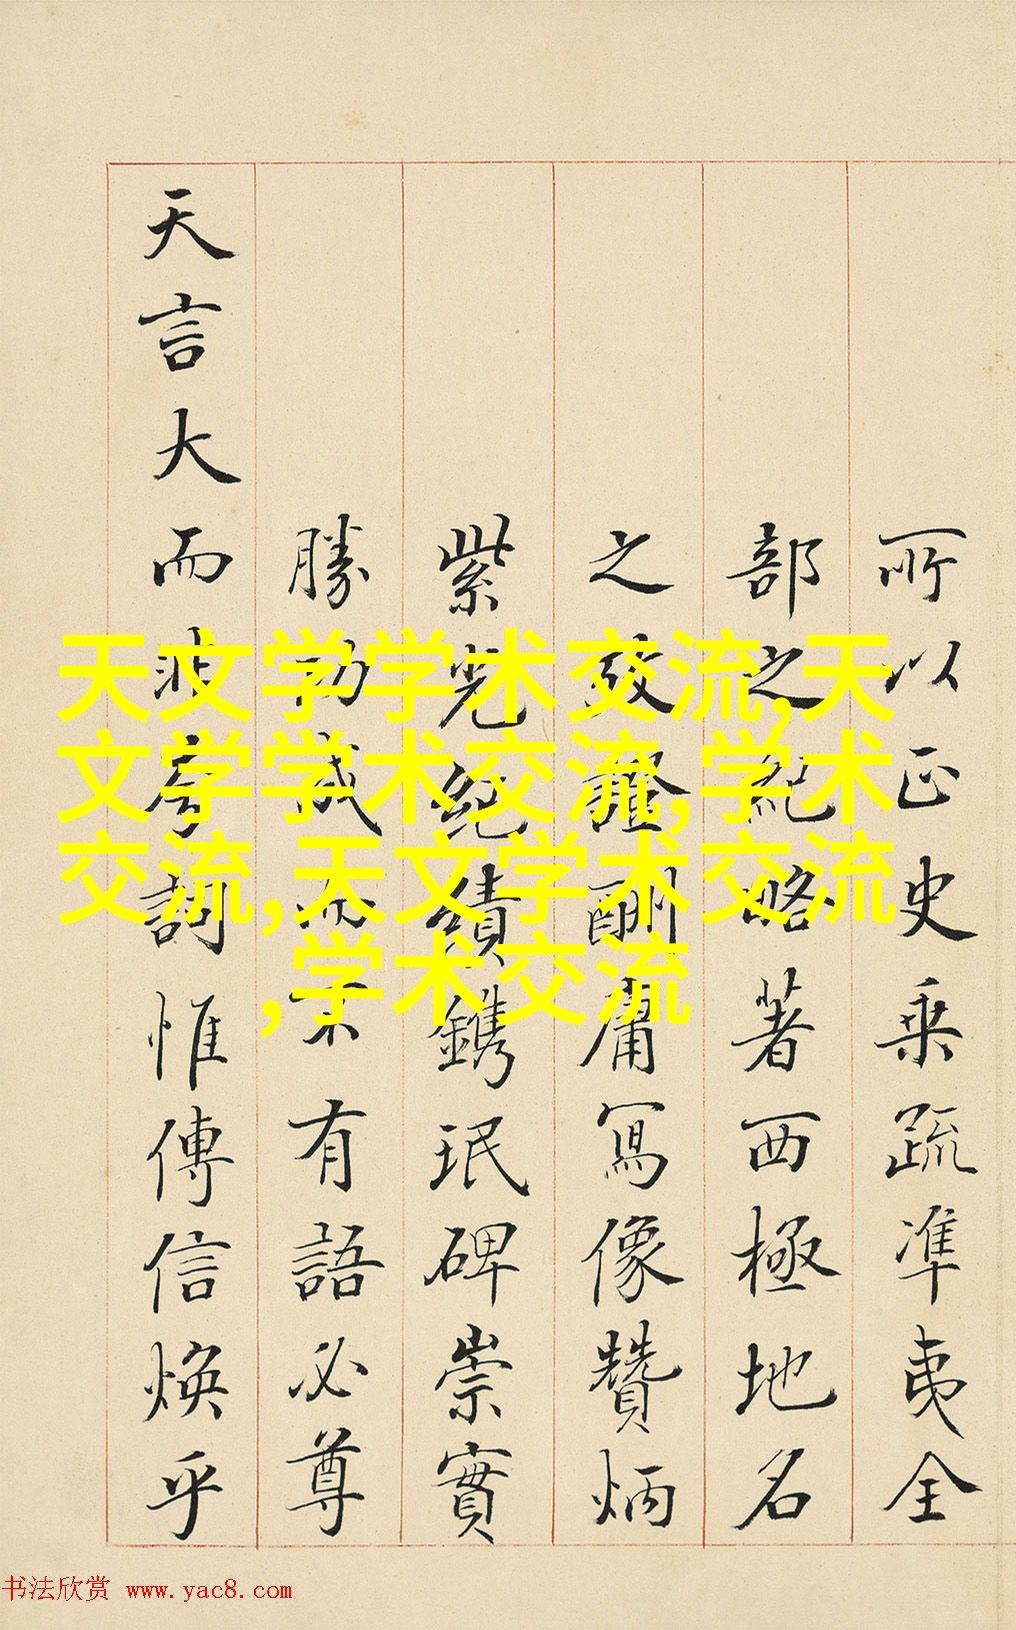 所以正史乘疏凖夷全
部之紀略著西極地名
之酬庸寫像贊炳
紫光絶績鐫珉碑崇實
勝功成而不有語必尊
天言大而非夸詞惟傳信煥乎
天文学学术交流,天
文学学术交流,学术
交流,天文学术交流
,学术交流
书法欣赏 www.yac8.com